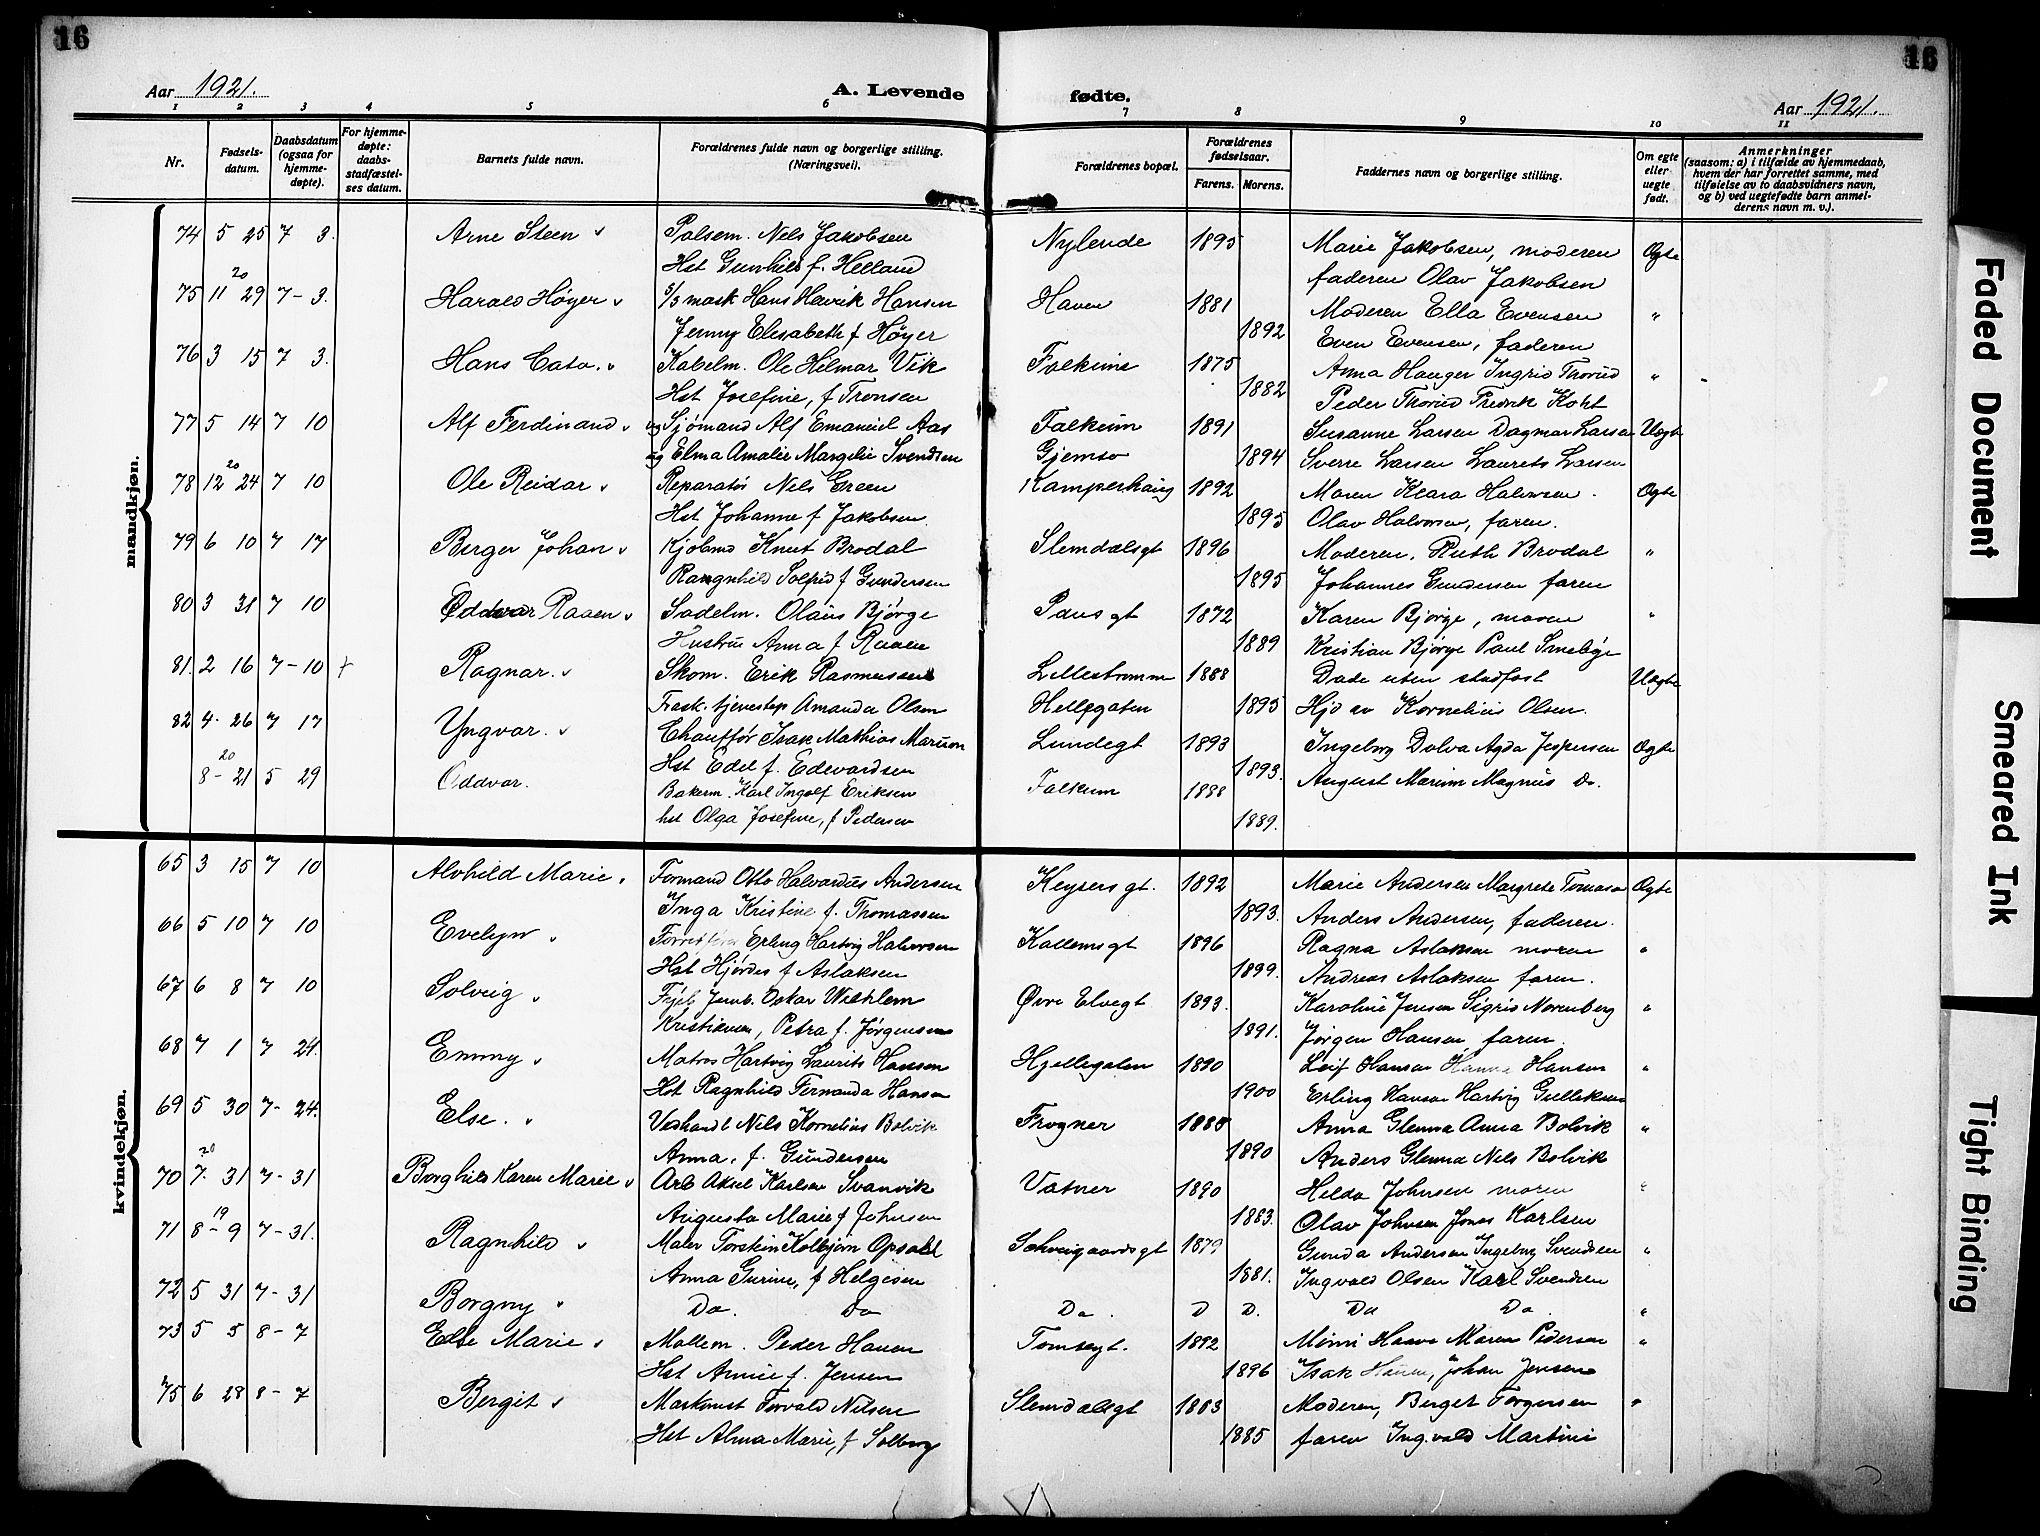 16
16
Aar 1921.
A. Levende fødte.
Aar 1921.
1 2 3 4 5 6 7 8 9 10 11
Nr.
Fødsels-
datum.
Daabsdatum
(ogsaa for
hjemme-
døpte).
For hjemme-
døpte:
daabs-
stadfæstel-
ses datum.
Barnets fulde navn.
Forældrenes fulde navn og borgerlige stilling.
(Næringsvei).
Forældrenes bopæl.
Forældrenes
fødselsaar.
Farens. Morens.
Faddernes navn og borgerlige stilling.
Om egte
eller
uegte
født.
Anmerkninger
(saasom: a) i tilfælde av hjemmedaab,
hvem der har forrettet samme, med
tilføielse av to daabsvidners navn,
og b) ved uegtefødte barn anmel-
derens navn m. v.).
mandkjøn.
74 5 25 7 3. Arne Steen Pølsem. Nels Jakobsen Nylende 1895 Marie Jakobsen, moderen Ægte
Hst Gunhild f. Helland faderen Olav Jakobsen
20
75 11 29 7-3. Harald Høyer 5/5 mask Hans Henrik Hansen Haven 1881 Moderen Ella Evensen "
Jenny Elisabeth f Høyer 1892 Even Evensen, faderen
76 3 15 7 3. Hans Cato. Kabelm. Ole Helmar Vik Falkum 1875 Anna Hauger Ingrid Thorud "
Hst Josefine, f Tronsen 1882 Peder Thorud Fredrik Koht
77 5 14 7 10 Alf Ferdinand ug Sjømand Alf Emanuel Aas Falkum 1891 Susanne Larsen Dagmar Larsen Uægte
ug Elma Amalie Margelie Svendsen Gjemsø 1894 Sverre Larsen Laurets Larsen
20
78 12 24 7 10 Ole Reidar Reparatør Nels Green Kamperhaug 1892 Maren Klara Halvorsen. Ægte
Hst Johanne f Jakobsen. 1895 Olav Halvorsen, faren.
79 6 10 7 17 Berger Johan Kjøbmd Knut Brodal Slemdalsgt 1896 Moderen. Ruth Brodal "
Rangnhild Solfrid f Gundersen 1895 Johannes Gundersen faren
80 3 31 7 10 Oddvar Raaen Sadelm. Olaus Bjørge Pausgt 1872 Karen Bjørge, moren "
Hustru Anna f Raaen 1889 Kristian Bjørge Paul Smebye
81. 2 16 7-10 + Ragnar. Skom. Erik Rasmussen Lillestrømm 1888 Døde uten stadfæst Uægte
Frask. tjenestep Amanda Olsen Hellegaten 1895 Hjd av Kornelius Olsen.
82 4. 26 7 17 Yngvar. Chauffør Isak Mathias Marium Lundegt 1893 Ingeborg Dolva Agda Jespersen Ægte
Hst Edel f. Edevardsen 1893. August Marium Magnus Do.
20
8-21 5 29 Oddvar. Bakerm. Karl Ingolf Eriksen Falkum 1888
hst Olga Josefine, f Pedersen 1889.
kvindekjøn.
65 3 15 7 10 Alvhild Marie. Formand Otto Halvardus Andersen Keysersgt. 1892 Marie Andersen Margrete Tomasen Ægte
Inga Kristine f. Thomassen 1893. Anders Andersen, faderen.
66 5 10 7 10 Evelyn Erling Hartvig Halvorsen Kallemsgt 1896 Ragna Aslaksen moren "
Hst Hjørdis f Aslaksen 1899. Andreas Aslaksen faren.
67 6 8 7 10 Solveig Oskar Wilhlem Øvre Elvegt 1893. Karoline Jensen Sigrid Norenberg "
Kristiansen, Petra f. Jørgensen 1891. Jørgen Hansen faren
68 7 1 7 24. Emmy Matros Hartvig Laurits Hansen Hjellegaten 1890 Leif Hansen Hanna Hansen "
Hst Ragnhild Fernanda Hansen 1900 Erling Hansen Hartvig Gulleksen
69 5 30 7-24. Else. Vedhandl Nils Kornelius Bolvik Frogner 1888 Anna Glenna Anna Bolvik "
Anna, f. Gundersen 1890 Anders Glenna Nils Bolvik
20
70 7. 31 7-31 Borghild Karen Marie Arb Aksel Karlsen Svanvik Vatner 1890 Helda Johnsen moren "
Augusta Marie f Johnsen 1883. Olav Johnsen Jonas Karlsen
19
71 8-9 7-31. Ragnhild Maler Torstein Kolbjørn Opsahl Schweigaardsgt 1879 Gunda Andersen Ingeborg Svendsen "
Anna Gurine, f Helgesen 1881. Ingvald Olsen Karl Svendsen
72 5 31 7-31 Borgny Do. Do Do. D D. Do Do "
73 5 5 8-7 Else Marie Møllem. Peder Hauen Tomsegt. 1892 Mimi Haave Maren Pedersen "
Hst Annie f. Jensen 1896 Isak Hauen, Johan Jensen
75 6 28 8-7 Bergit Maskinist Torvald Nilsen Slemdalsgt 1883 Moderen, Berget Torgersen "
Hst Alma Marie, f Solberg 1885 faren Ingvald Martini
Faded Document
Smeared Ink
Tight Binding